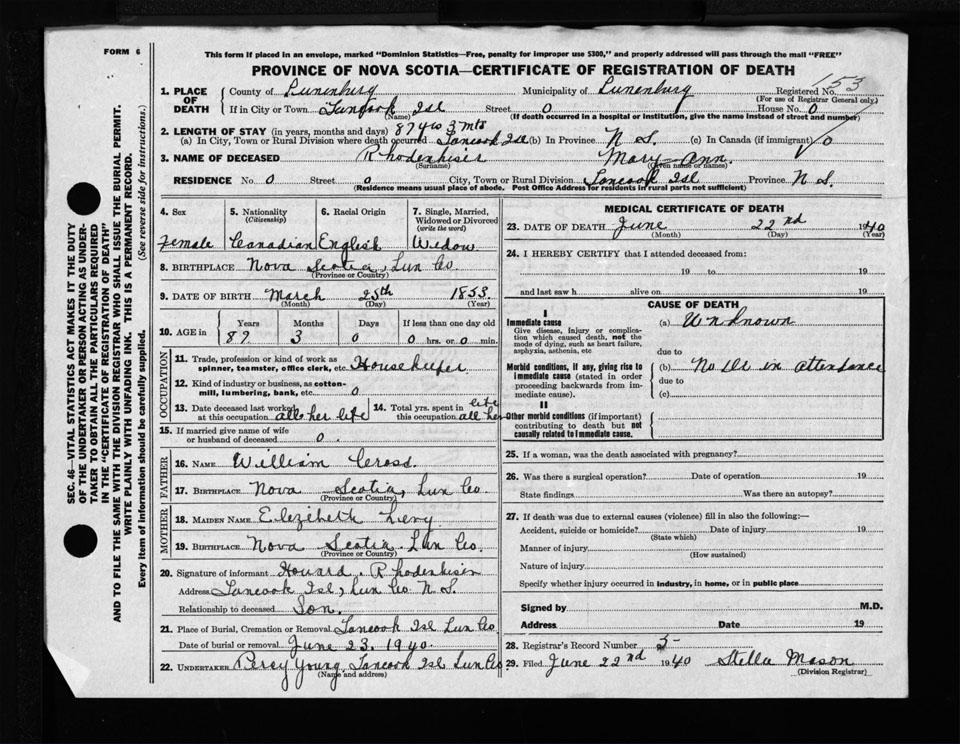 FORM 6
This form if placed in an envelope, marked "Dominion Statistics—Free, penalty for improper use $300," and properly addressed will pass through the mail "FREE"
PROVINCE OF NOVA SCOTIA—CERTIFICATE OF REGISTRATION OF DEATH
153
1. PLACE OF DEATH
County of Lunenburg Municipality of Lunenburg Registered No.
(For use of Registrar General only.)
If in City or Town Tancook Isl Street 0 House No. 0
(Name) (If death occurred in a hospital or institution, give the name instead of street and number)
2. LENGTH OF STAY (in years, months and days) 87 yrs 3 mts
(a) In City, Town or Rural Division where death occurred Tancook Isl (b) In Province N S. (c) In Canada (if immigrant) 0
3. NAME OF DECEASED Rhodenhiser Mary Ann.
(Surname) (Given name or names)
RESIDENCE No. 0 Street 0 City, Town or Rural Division Tancook Isl Province N S.
(Residence means usual place of abode. Post Office Address for residents in rural parts not sufficient)
SEC. 46—VITAL STATISTICS ACT MAKES IT THE DUTY
OF THE UNDERTAKER OR PERSON ACTING AS UNDER-
TAKER TO OBTAIN ALL THE PARTICULARS REQUIRED
IN THE "CERTIFICATE OF REGISTRATION OF DEATH"
AND TO FILE THE SAME WITH THE DIVISION REGISTRAR WHO SHALL ISSUE THE BURIAL PERMIT.
WRITE PLAINLY WITH UNFADING INK. THIS IS A PERMANENT RECORD.
Every item of information should be carefully supplied. (See reverse side for instructions.)
4. Sex
Female
5. Nationality
(Citizenship)
Canadian
6. Racial Origin
English
7. Single, Married, Widowed or Divorced
(write the word)
Widow
8. BIRTHPLACE Nova Scotia, Lun Co.
(Province or Country)
9. DATE OF BIRTH March 25th 1853
(Month) (Day) (Year)
10. AGE in Years Months Days If less than one day old
87. 3 0 0 hrs. or 0 min.
OCCUPATION
11. Trade, profession or kind of work as
spinner, teamster, office clerk, etc. Housekeeper
12. Kind of industry or business, as cotton-
mill, lumbering, bank, etc. 0
13. Date deceased last worked at this occupation all her life
14. Total yrs. spent in this occupation all her life
15. If married give name of wife
or husband of deceased 0.
FATHER
16. NAME William Cross.
17. BIRTHPLACE Nova Scotia, Lun Co.
(Province or Country)
MOTHER
18. MAIDEN NAME Elezibeth Levy
19. BIRTHPLACE Nova Scotia. Lun Co.
(Province or Country)
20. Signature of informant Houard. Rhodenhiser
Address Tancook Isl, Lun Co N S.
Relationship to deceased Son.
21. Place of Burial, Cremation or Removal Tancook Isl Lun Co
Date of burial or removal June 23, 1940.
22. UNDERTAKER Percy Young, Tancook Isl Lun Co
(Name and address)
MEDICAL CERTIFICATE OF DEATH
23. DATE OF DEATH June 22nd 1940
(Month) (Day) (Year)
24. I HEREBY CERTIFY that I attended deceased from:
19 to 19
and last saw h alive on 19
CAUSE OF DEATH
I
Immediate cause (a) Unknown
Give disease, injury or complica-
tion which caused death, not the
mode of dying, such as heart failure,
asphyxia, asthenia, etc due to
Morbid conditions, if any, giving rise to (b) No Dr in attendance
immediate cause (stated in order due to
proceeding backwards from im-
mediate cause). (c)
II
Other morbid conditions (if important)
contributing to death but not
causally related to immediate cause.
25. If a woman, was the death associated with pregnancy?
26. Was there a surgical operation? Date of operation 19
State findings Was there an autopsy?
27. If death was due to external causes (violence) fill in also the following:—
Accident, suicide or homicide? Date of injury 19
(State which)
Manner of injury
(How sustained)
Nature of injury
Specify whether injury occurred in industry, in home, or in public place
Signed by M.D.
Address Date 19
28. Registrar's Record Number 5-
29. Filed June 22nd 1940 Stella Mason
(Division Registrar)